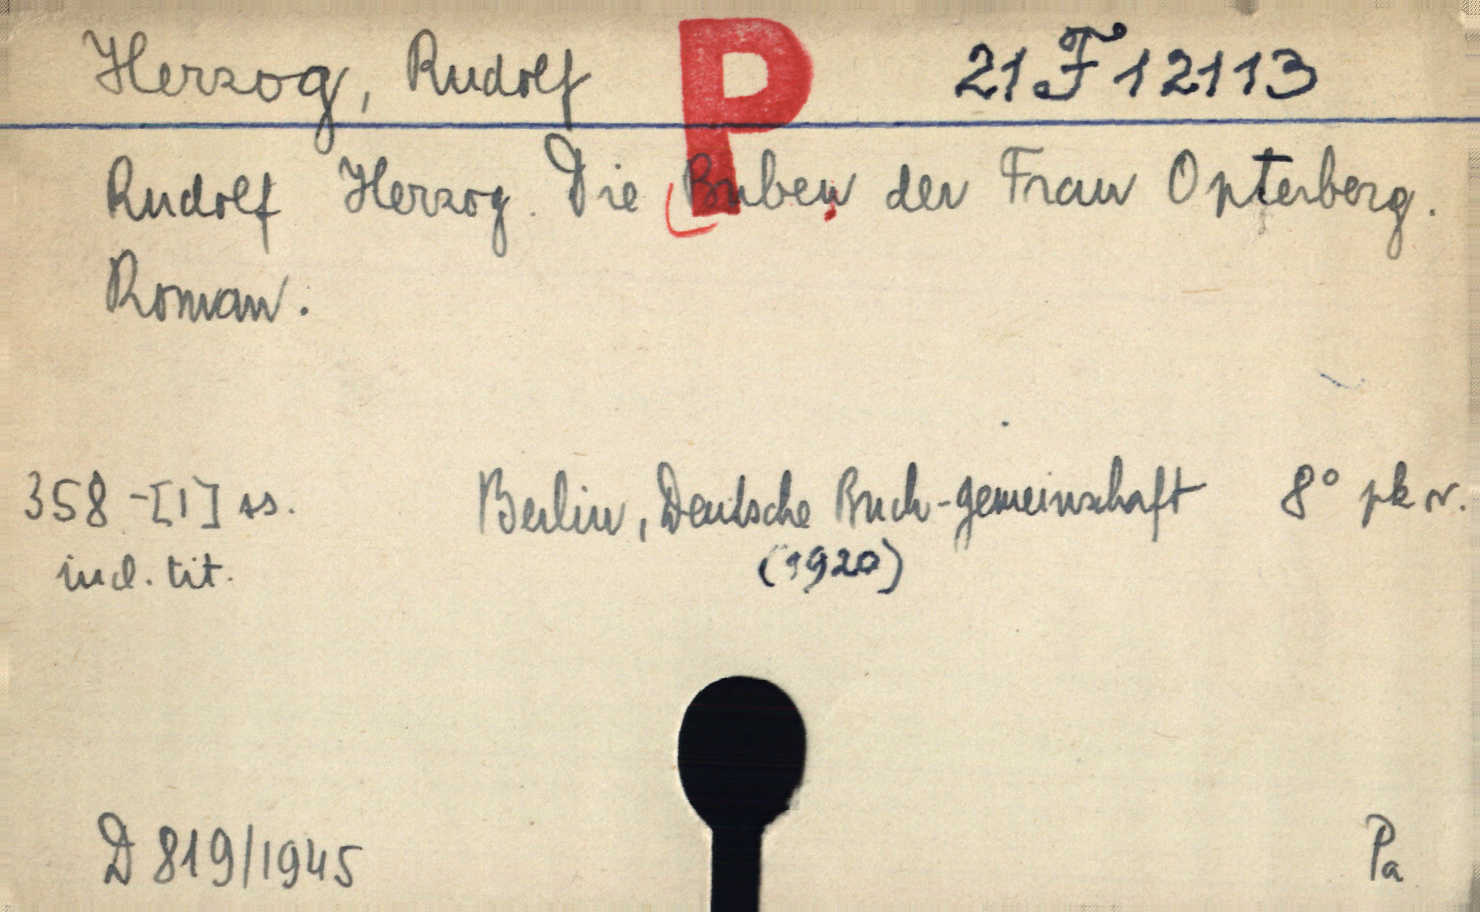 Herzog, Rudolf P 21 F 12113
Rudolf Herzog. Die Buben der Frau Opterberg.
Roman.
358-[1] ss. Berlin, Deutsche Buch-gemeinschaft 8° pk v.
incl. tit. (1920)
D 819/1945 Pa